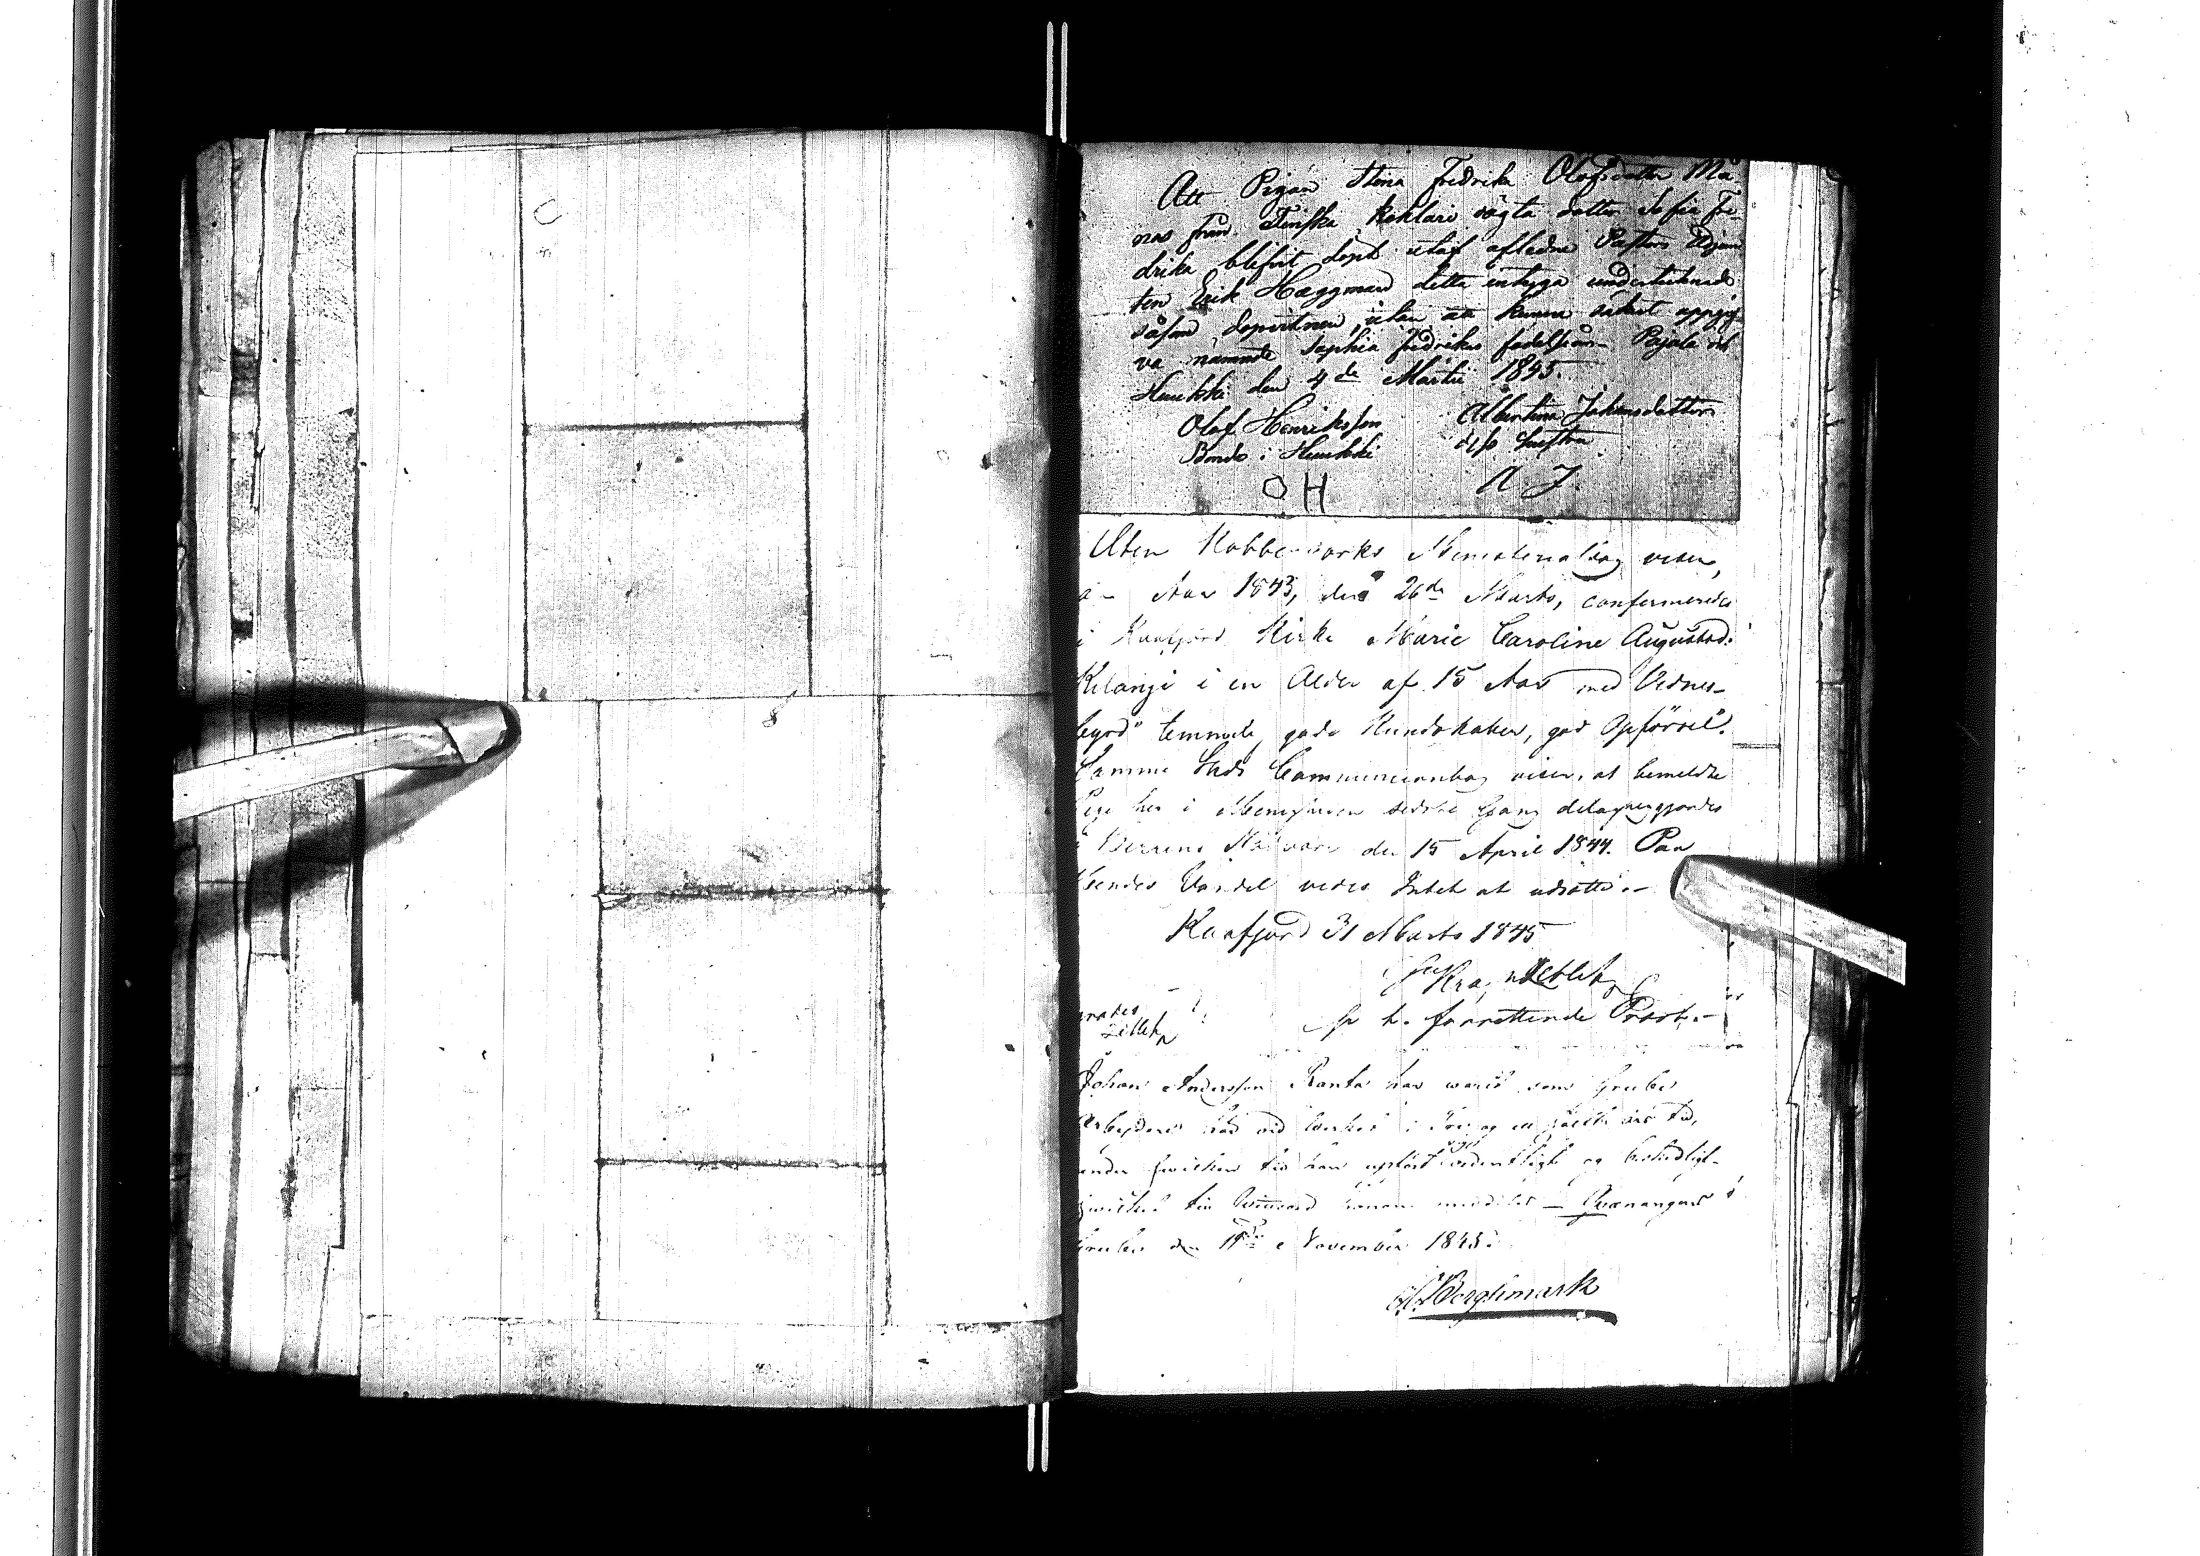 Att Pigan Stina Fredrika Olofsdotter Ma-
nas från Finska Kohlari oägta dotter Sofia Fre-
drika blefvit döpt utaf aflidne Pastors Adjunc-
ten Erik Hæggman detta intyga undertecknade
såsom dopvitnen, utan att kunna säkert uppgif-
va nämnde Sophia Fredrikas födelseår. Pajala och
Huukki den 4de Martii 1845.
Olof Henriksson Albertina Johansdotter
Bonde i Huukki dess hustru
OH A. J.
Alten Kobberværks Ministerialbog viser,
Aar 1843, den 26de Marts, confirmeredes
i Kaafjord Kirke Marie Caroline Augustad:
Kilangi i en Alder af 15 Aar med Vidnes-
byrd "temmelig gode Kundskaber, god Opførsel".
Samme Steds Communionbog viser, at bemeldte
Pige her i Menigheden sidste Gang delagtiggjordes
i Herrens Nadvere den 15 April 1844. Paa
hendes Vandel vides Intet at udsætte.-
Kaafjord 31 Marts 1845
p. t. forrettende Præst.-
Johan Andersson Ranta har warit som Grube
arbejdere här vid Werket i Tre og en halft års tid,
under hwilken tid han opfört sig ordentligt og beskedligt-
hwilket til Witnesbörd honom meddelas — Qvænangens
Gruber den 19de November 1845.
Berghmark